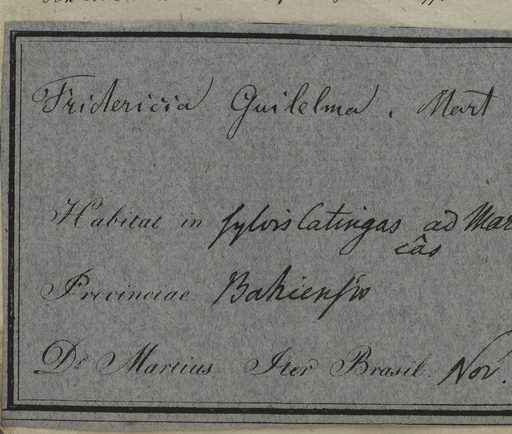 Fridericia Guilelma. Mart
Habitat in sylvis Catingas ad Mar
câs
Provinciae Bahiensis
Dr. Martius Iter Brasil. Nov.